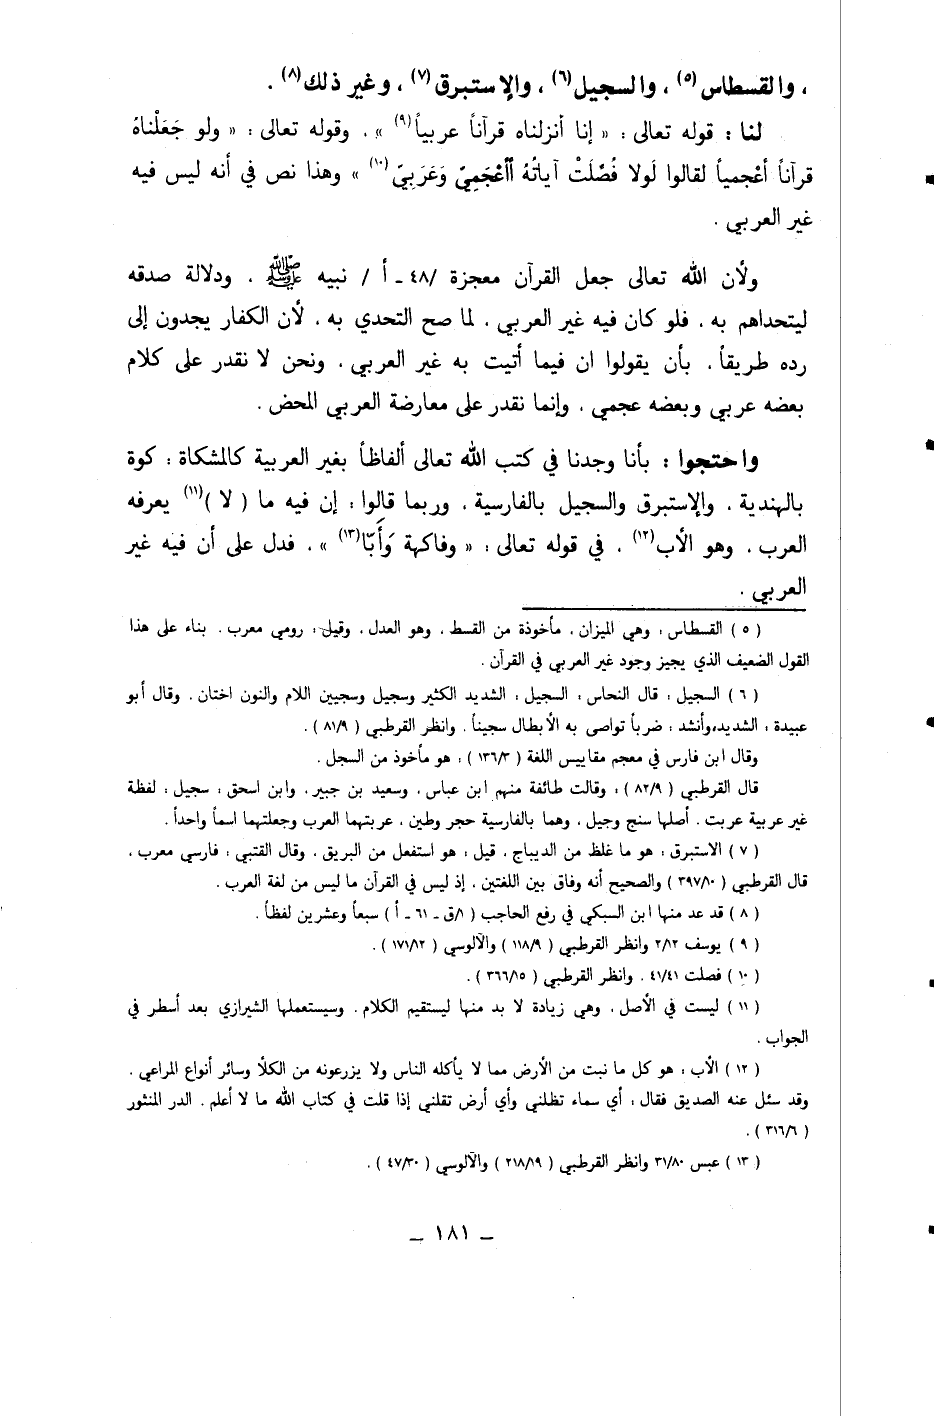 ، والقسطاس(٥) ، والسجيل(٦) ، والإستبرق(٧) ، وغير ذلك(٨) .
لنا : قوله تعالى : « إنا أنزلناه قرآناً عربياً(٩) » ، وقوله تعالى : « ولو جَعَلْناهُ
قرآناً أعْجمياً لقالوا لَولا فُصّلَتْ آياتُهُ أأعْجَمِيّ وَعَرَبيّ(١٠) » وهذا نص في أنه ليس فيه
غير العربي .
ولأن الله تعالى جعل القرآن معجزة /٤٨ ـ أ / نبيه ﷺ ، ودلالة صدقه
ليتحداهم به ، فلو كان فيه غير العربي ، لما صح التحدي به ، لأن الكفار يجدون إلى
رده طريقاً ، بأن يقولوا ان فيما أتيت به غير العربي ، ونحن لا نقدر على كلام
بعضه عربي وبعضه عجمي ، وإنما نقدر على معارضة العربي المحض .
واحتجوا : بأنا وجدنا في كتب الله تعالى ألفاظاً بغير العربية كالمشكاة : كوة
بالهندية ، والإستبرق والسجيل بالفارسية ، وربما قالوا : إن فيه ما ( لا )(١١) يعرفه
العرب ، وهو الأب(١٢) ، في قوله تعالى : « وفاكهة وَأَبّا(١٣) » ، فدل على أن فيه غير
العربي .
( ٥ ) القسطاس : وهي الميزان ، مأخوذة من القسط ، وهو العدل ، وقيل : رومي معرب . بناء على هذا
القول الضعيف الذي يجيز وجود غير العربي في القرآن .
( ٦ ) السجيل : قال النحاس : السجيل : الشديد الكثير وسجيل وسجيين اللام والنون اختان . وقال أبو
عبيدة : الشديد،وأنشد : ضرباً تواصى به الأبطال سجيناً . وانظر القرطبي ( ٨١/٩ ) .
وقال ابن فارس في معجم مقاييس اللغة ( ١٣٦/٣ ) : هو مأخوذ من السجل .
قال القرطبي ( ٨٢/٩ ) : وقالت طائفة منهم ابن عباس ، وسعيد بن جبير ، وابن اسحق : سجيل : لفظة
غير عربية عربت . أصلها سنج وجيل ، وهما بالفارسية حجر وطين ، عربتهما العرب وجعلتهما اسماً واحداً .
( ٧ ) الاستبرق : هو ما غلظ من الديباج ، قيل : هو استفعل من البريق ، وقال القتبي : فارسي معرب ،
قال القرطبي ( ٣٩٧/١٠ ) والصحيح أنه وفاق بين اللغتين ، إذ ليس في القرآن ما ليس من لغة العرب .
( ٨ ) قد عد منها ابن السبكي في رفع الحاجب ( ١/ق ـ ٦١ ـ أ ) سبعاً وعشرين لفظاً .
( ٩ ) يوسف ٢/١٢ وانظر القرطبي ( ١١٨/٩ ) والآلوسي ( ١٧١/١٢ ) .
( ١٠ ) فصلت ٤١/٤١ . وانظر القرطبي ( ٣٦٦/١٥ ) .
( ١١ ) ليست في الأصل ، وهي زيادة لا بد منها ليستقيم الكلام . وسيستعملها الشيرازي بعد أسطر في
الجواب .
( ١٢ ) الأب : هو كل ما نبت من الأرض مما لا يأكله الناس ولا يزرعونه من الكلأ وسائر أنواع المراعي .
وقد سئل عنه الصديق فقال : أي سماء تظلني وأي أرض تقلني إذا قلت في كتاب الله ما لا أعلم . الدر المنثور
( ٣١٦/٦ ) .
( ١٣ ) عبس ٣١/٨٠ وانظر القرطبي ( ٢١٨/١٩ ) والآلوسي ( ٤٧/٣٠ ) .
ـ ١٨١ ـ